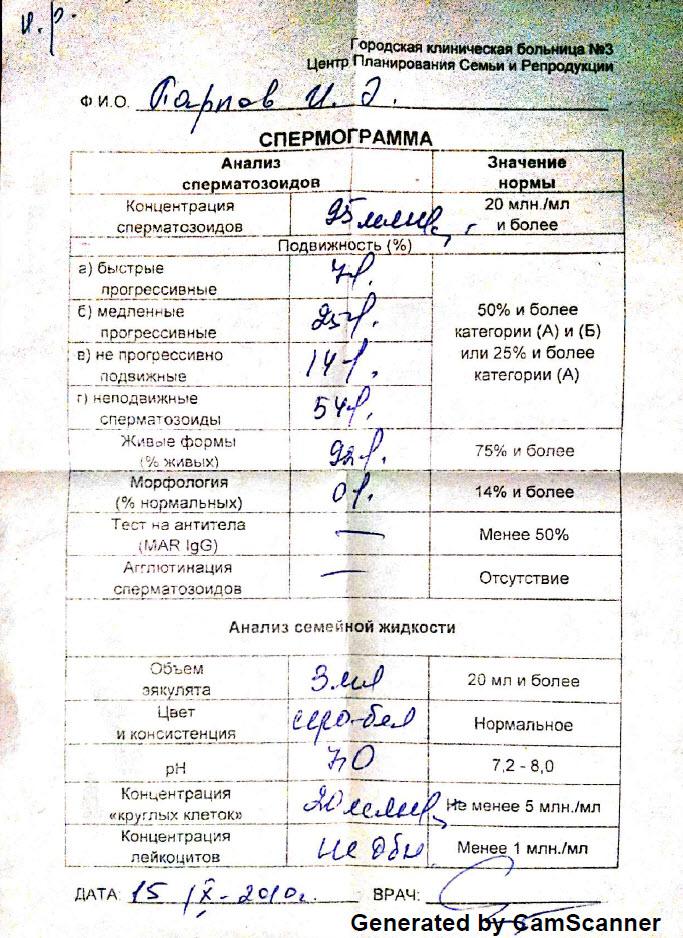 и.р.
Городская клиническая больница №3
Центр Планирования Семьи и Репродукции
Ф.И.О. И. Э.
СПЕРМОГРАММА
Анализ
сперматозоидов
Значение
нормы
Концентрация
сперматозоидов
млн
20 млн./мл
и более
Подвижность (%)
а) быстрые
прогрессивные
7%.
б) медленные
прогрессивные
25%.
в) не прогрессивно
подвижные
14%.
г) неподвижные
сперматозоиды
54%.
50% и более
категории (А) и (Б)
или 25% и более
категории (А)
Живые формы
(% живых)
92%.
75% и более
Морфология
(% нормальных)
0%.
14% и более
Тест на антитела
(MAR IgG)
—
Менее 50%
Агглютинация
сперматозоидов
—
Отсутствие
Анализ семейной жидкости
Объем
эякулята
3 мл
20 мл и более
Цвет
и консистенция
серо-бел
Нормальное
pH
7,0
7,2 - 8,0
Концентрация
«круглых клеток»
20 млн
Не менее 5 млн./мл
Концентрация
лейкоцитов
не обн.
Менее 1 млн./мл
ДАТА: 15 IX-2010г. ВРАЧ:
Generated by CamScanner